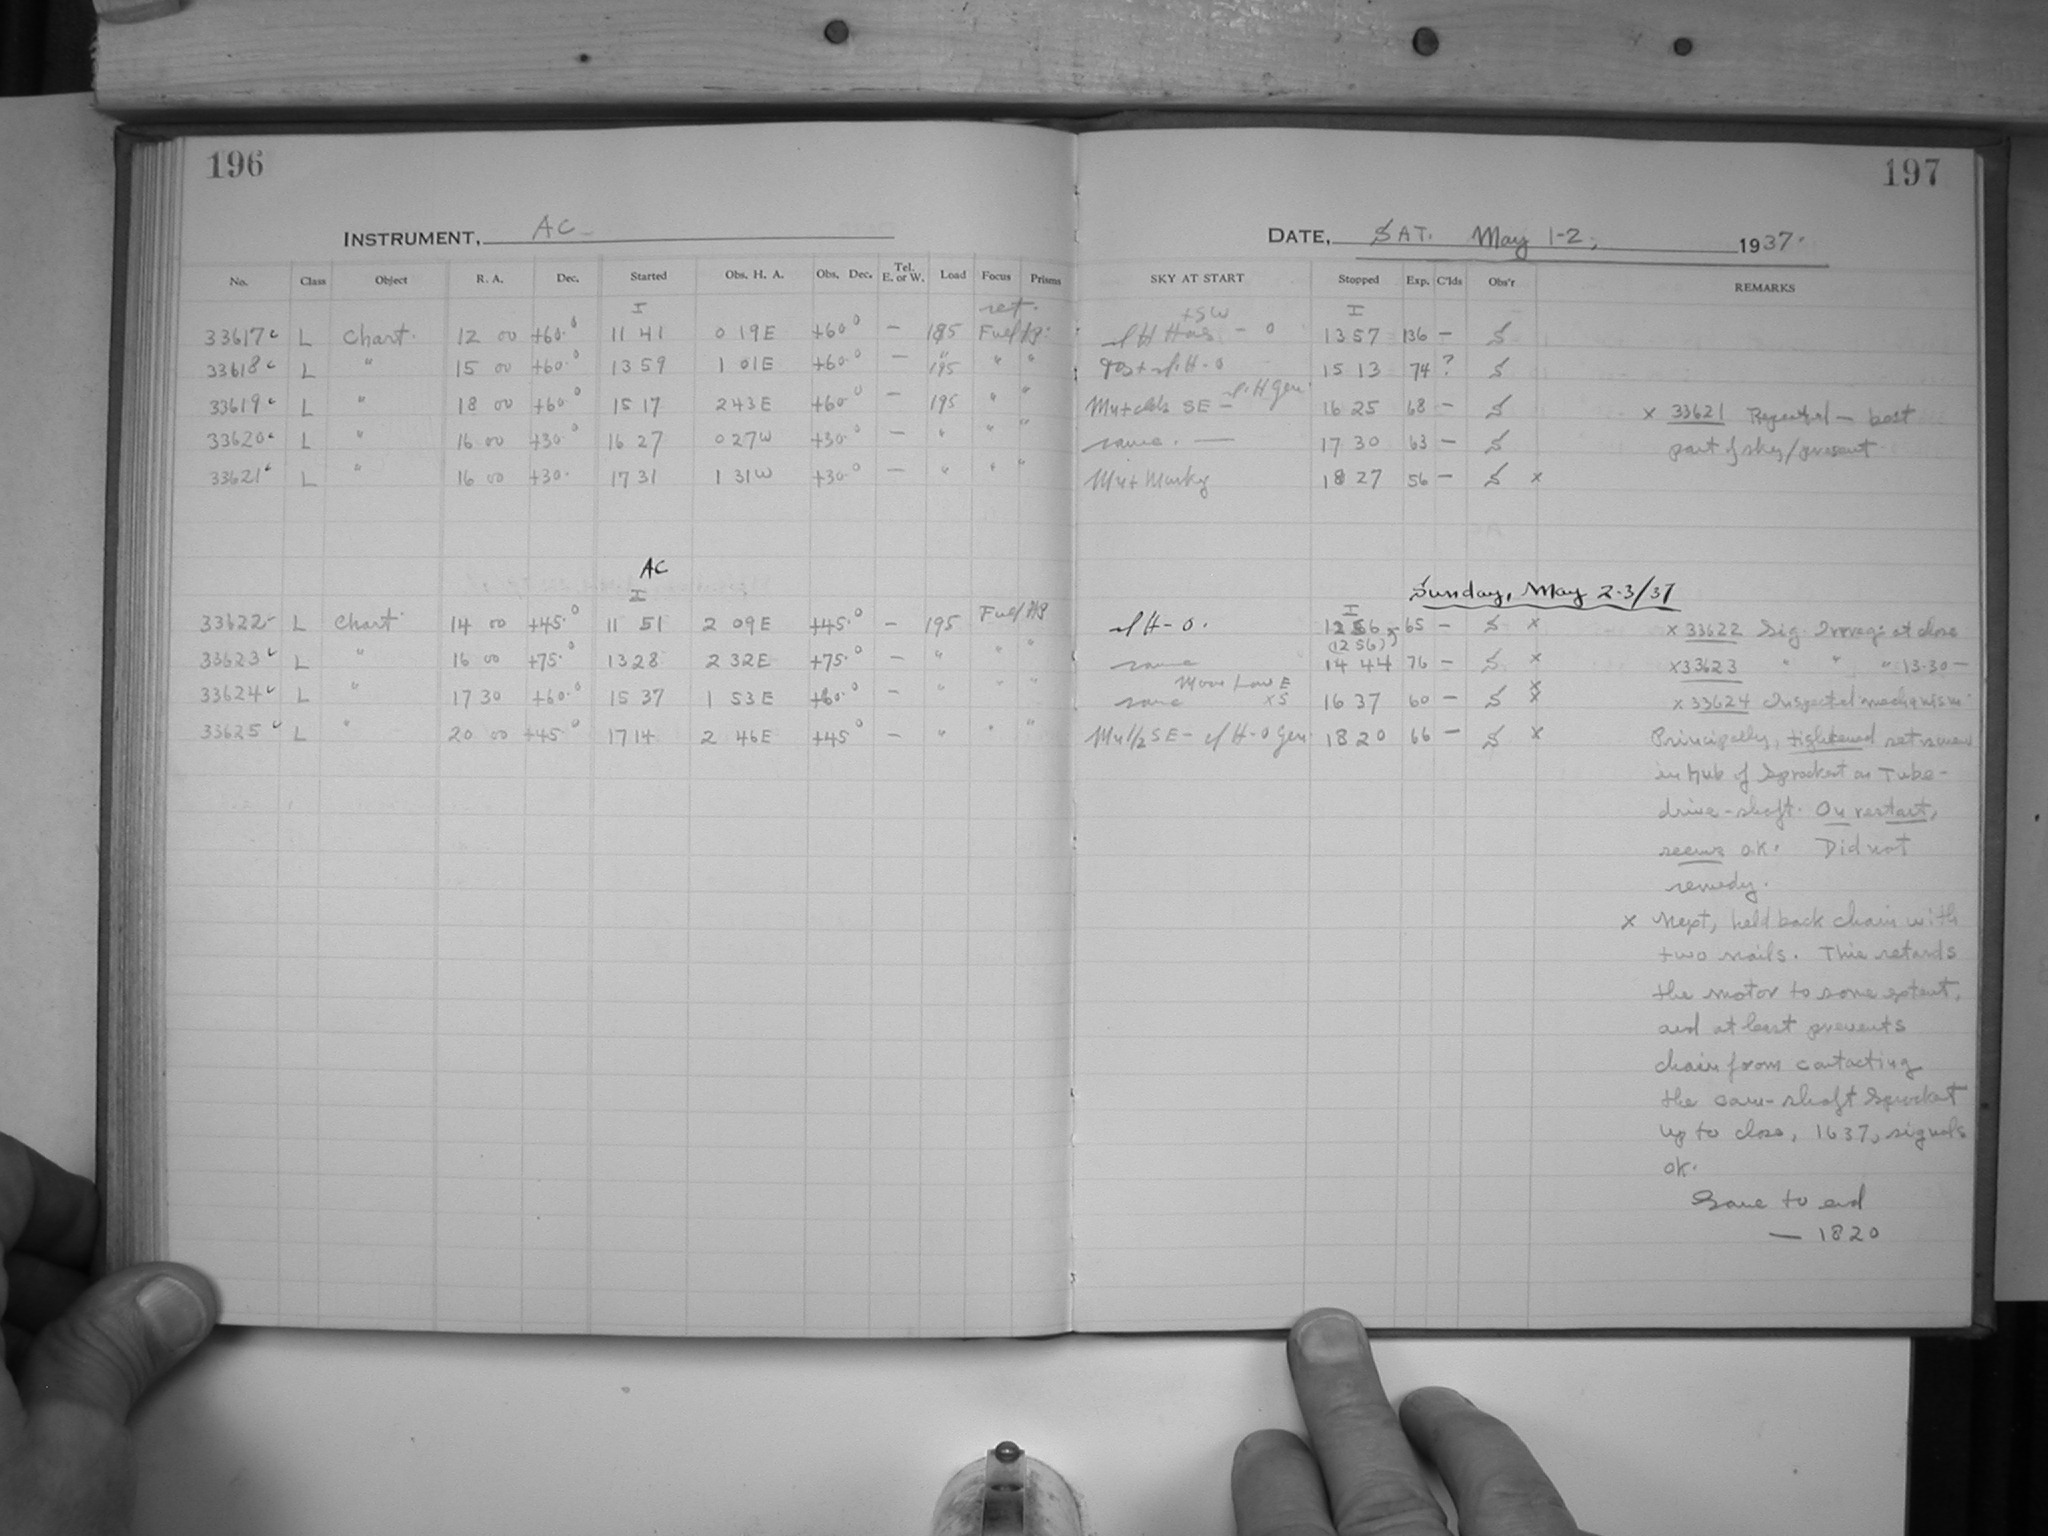 196
197
INSTRUMENT, AC
DATE, SAT. May 1-2, 1937.
No. Class Object R. A. Dec. Started Obs. H. A. Obs. Dec. Tel. E. or W. Load Focus Prisms SKY AT START Stopped Exp. C'lds Obs'r REMARKS
33617 L Chart. 12 00 +60.° 11 41 0 19E +60° — 185 — 0 13 57 136 — S
33618 L " 15 00 +60.° 13 59 1 01E +60.° — 195 " " 15 13 74 ? S
33619 L " 18 00 +60° 15 17 2 43E +60° — 195 " " SE — 16 25 68 — S × 33621 Repeated — best
33620 L " 16 00 +30° 16 27 0 27W +30.° — " " " same. — 17 30 63 — S part of sky/present.
33621 L " 16 00 +30. 17 31 1 31W +30.° — " " " 18 27 56 — S ×
AC
Sunday, May 2-3/37
33622 L Chart 14 00 +45.° 11 51 2 09E +45.° — 195 H-0. 12 56 65 — S × × 33622 Sig. Irreg. at close
(12 56)
33623 L " 16 00 +75.° 13 28 2 32E +75.° — " " " same 14 44 76 — S × × 33623 " " " 13.30 —
Moon Low E
33624 L " 17 30 +60.° 15 37 1 53E +60.° — " " " same × S 16 37 60 — S × × 33624 Inspected mechanism.
33625 L " 20 00 +45° 17 14 2 46E +45° — " " " SE — H-0 Gen. 18 20 66 — S × Principally, tightened set screw
in hub of sprocket on Tube-
drive-shaft. On restart,
seems ok. Did not
remedy.
× Next, held back chain with
two nails. This retards
the motor to some extent,
and at least prevents
chain from contacting
the cam-shaft sprocket
up to close, 1637, signals
ok.
Same to end
— 1820